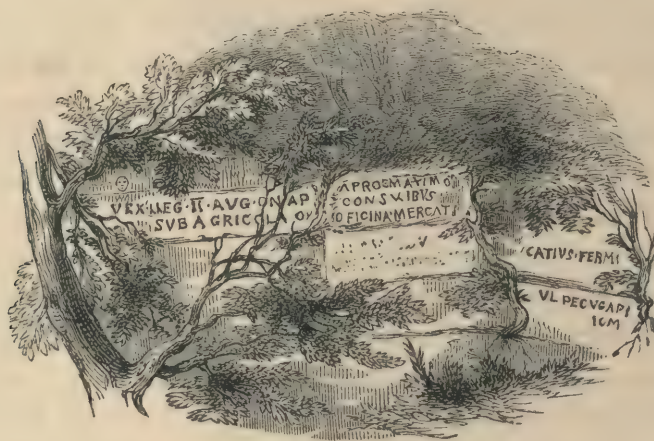 VEX·LLEG·II·AUG·ON·AP
SUB AGRICOLA O
APROEMAXIMO
CONSVLIBVS
OFICINA·MERCATI
CATIVS·FERMI
VL PECVGAPI
ICM